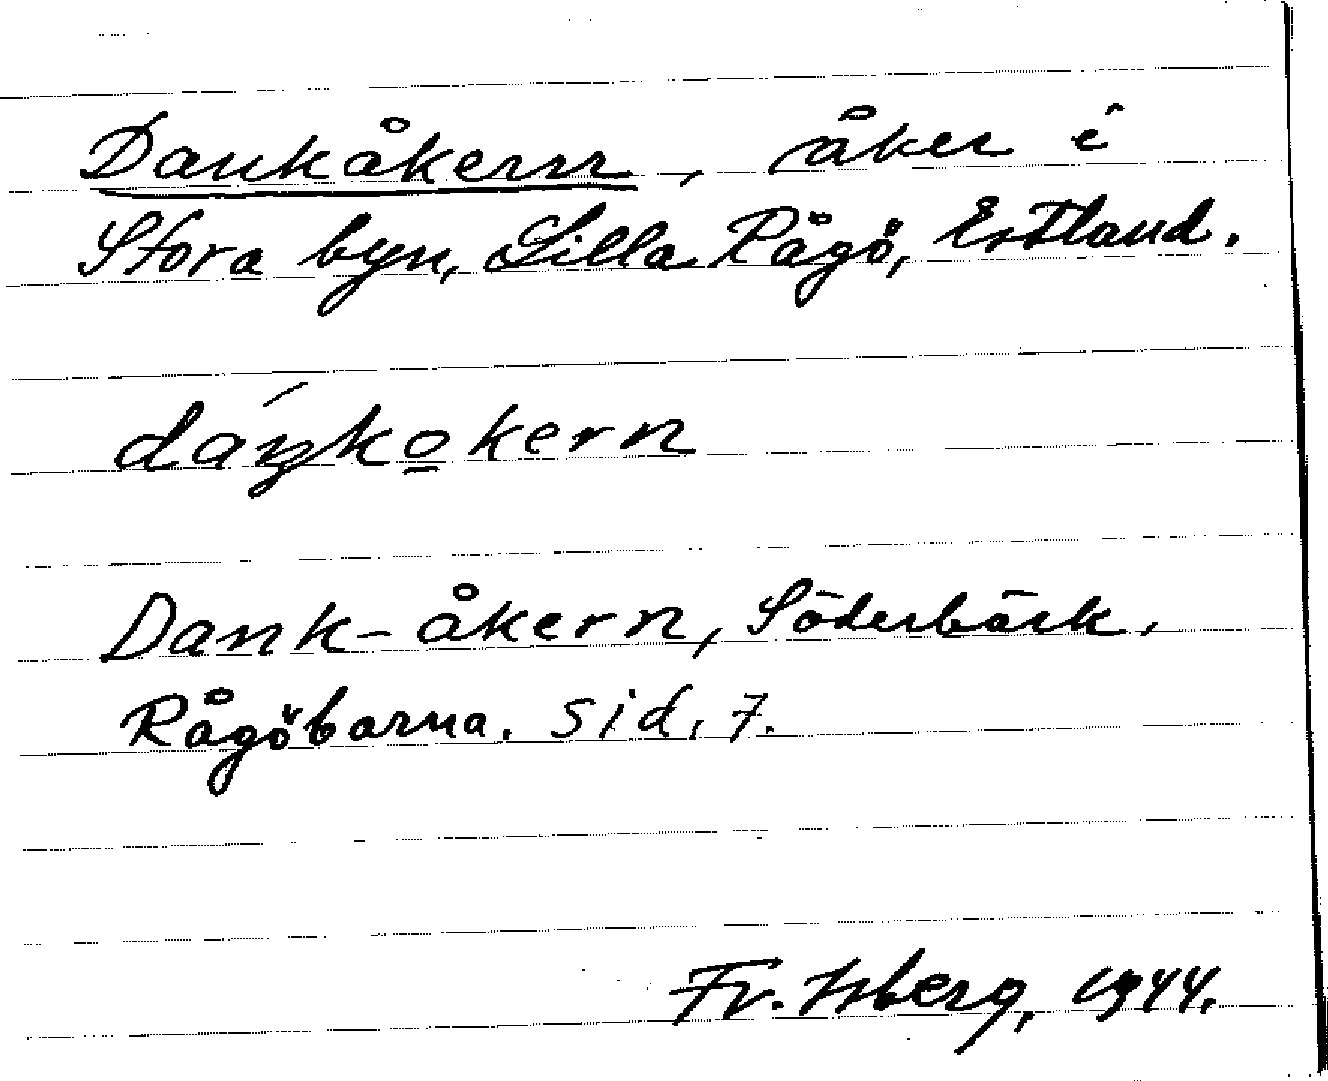 Dankåkern, åker i
Stora byn, Lilla Rågö, Estland.
dáŋko̲kern
Dank-åkern, Söderbäck,
Rågöbarna. sid. 7.
Fr. Isberg, 1944.